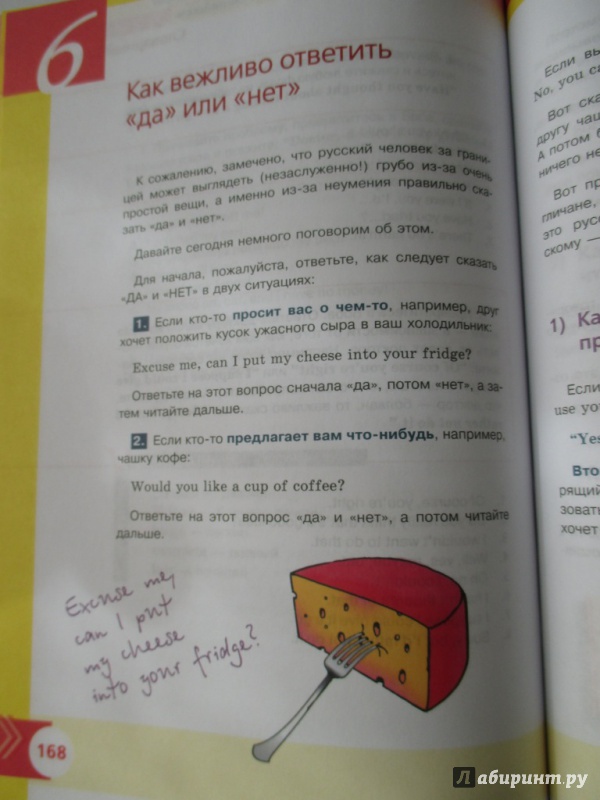 6
Как вежливо ответить
«да» или «нет»
К сожалению, замечено, что русский человек за грани-
цей может выглядеть (незаслуженно!) грубо из-за очень
простой вещи, а именно из-за неумения правильно ска-
зать «да» и «нет».
Давайте сегодня немного поговорим об этом.
Для начала, пожалуйста, ответьте, как следует сказать
«ДА» и «НЕТ» в двух ситуациях:
1. Если кто-то просит вас о чем-то, например, друг
хочет положить кусок ужасного сыра в ваш холодильник:
Excuse me, can I put my cheese into your fridge?
Ответьте на этот вопрос сначала «да», потом «нет», а за-
тем читайте дальше.
2. Если кто-то предлагает вам что-нибудь, например,
чашку кофе:
Would you like a cup of coffee?
Ответьте на этот вопрос «да» и «нет», а потом читайте
дальше.
Excuse me,
can I put
my cheese
into your fridge?
168
Если вы
No, you ca
Вот ска
другу чаш
А потом б
ничего не
Вот пр
гличане,
это рус
скому —
1) Ка
пр
Если
use you
"Yes
Вто
рящий
зоват
хочет
Лабиринт.ру